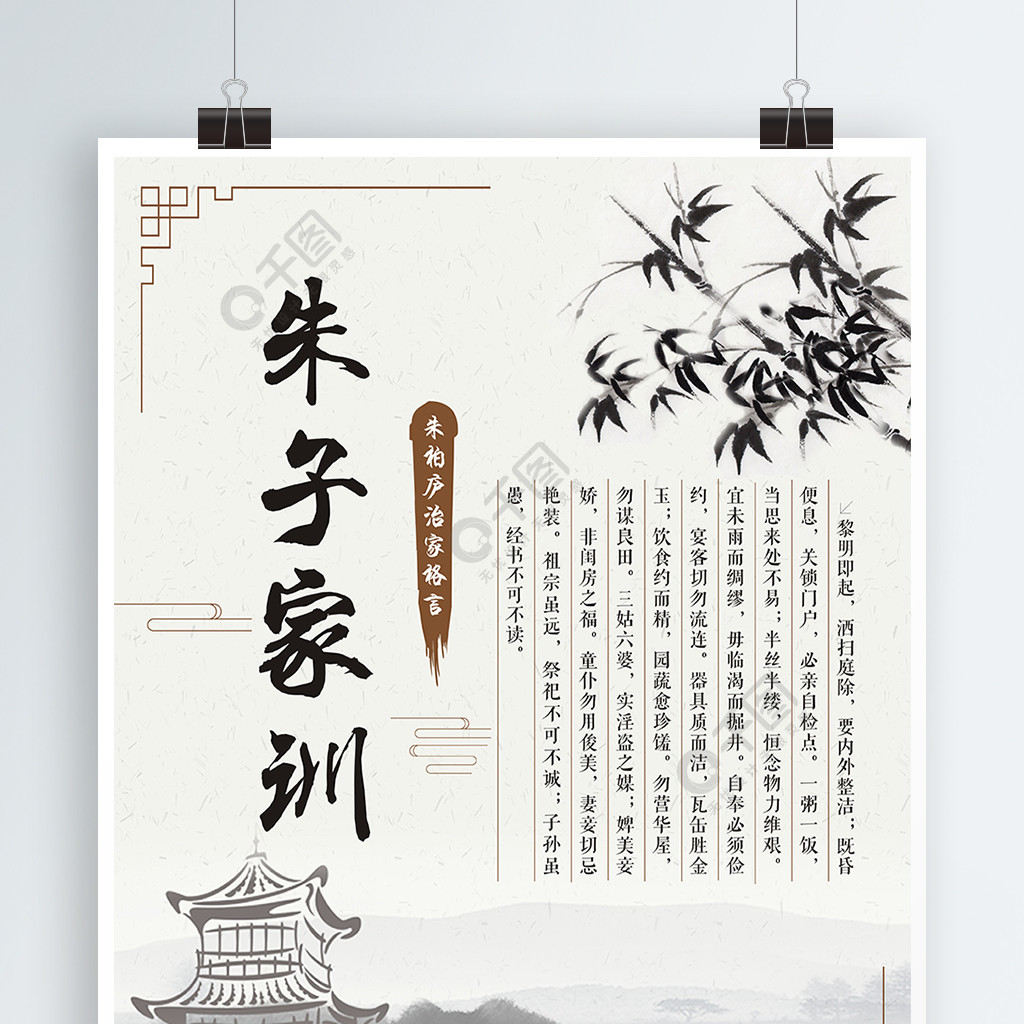 朱子家训
朱柏庐治家格言
黎明即起，洒扫庭除，要内外整洁；既昏
便息，关锁门户，必亲自检点。一粥一饭，
当思来处不易；半丝半缕，恒念物力维艰。
宜未雨而绸缪，毋临渴而掘井。自奉必须俭
约，宴客切勿流连。器具质而洁，瓦缶胜金
玉；饮食约而精，园蔬愈珍馐。勿营华屋，
勿谋良田。三姑六婆，实淫盗之媒；婢美妾
娇，非闺房之福。童仆勿用俊美，妻妾切忌
艳装。祖宗虽远，祭祀不可不诚；子孙虽
愚，经书不可不读。
千图
千图
千图